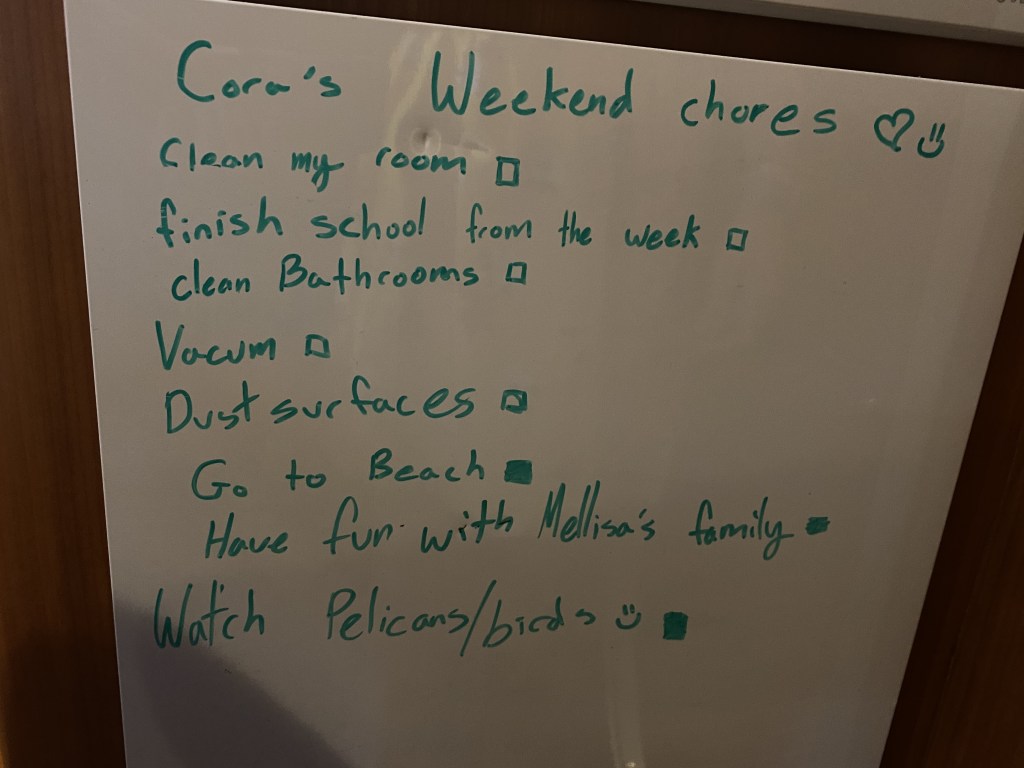 Cora's Weekend chores ♡ :)
Clean my room ☐
finish school from the week ☐
clean Bathrooms ☐
Vacum ☐
Dust surfaces ☐
Go to Beach ■
Have fun with Mellisa's family ■
Watch Pelicans/birds :) ■